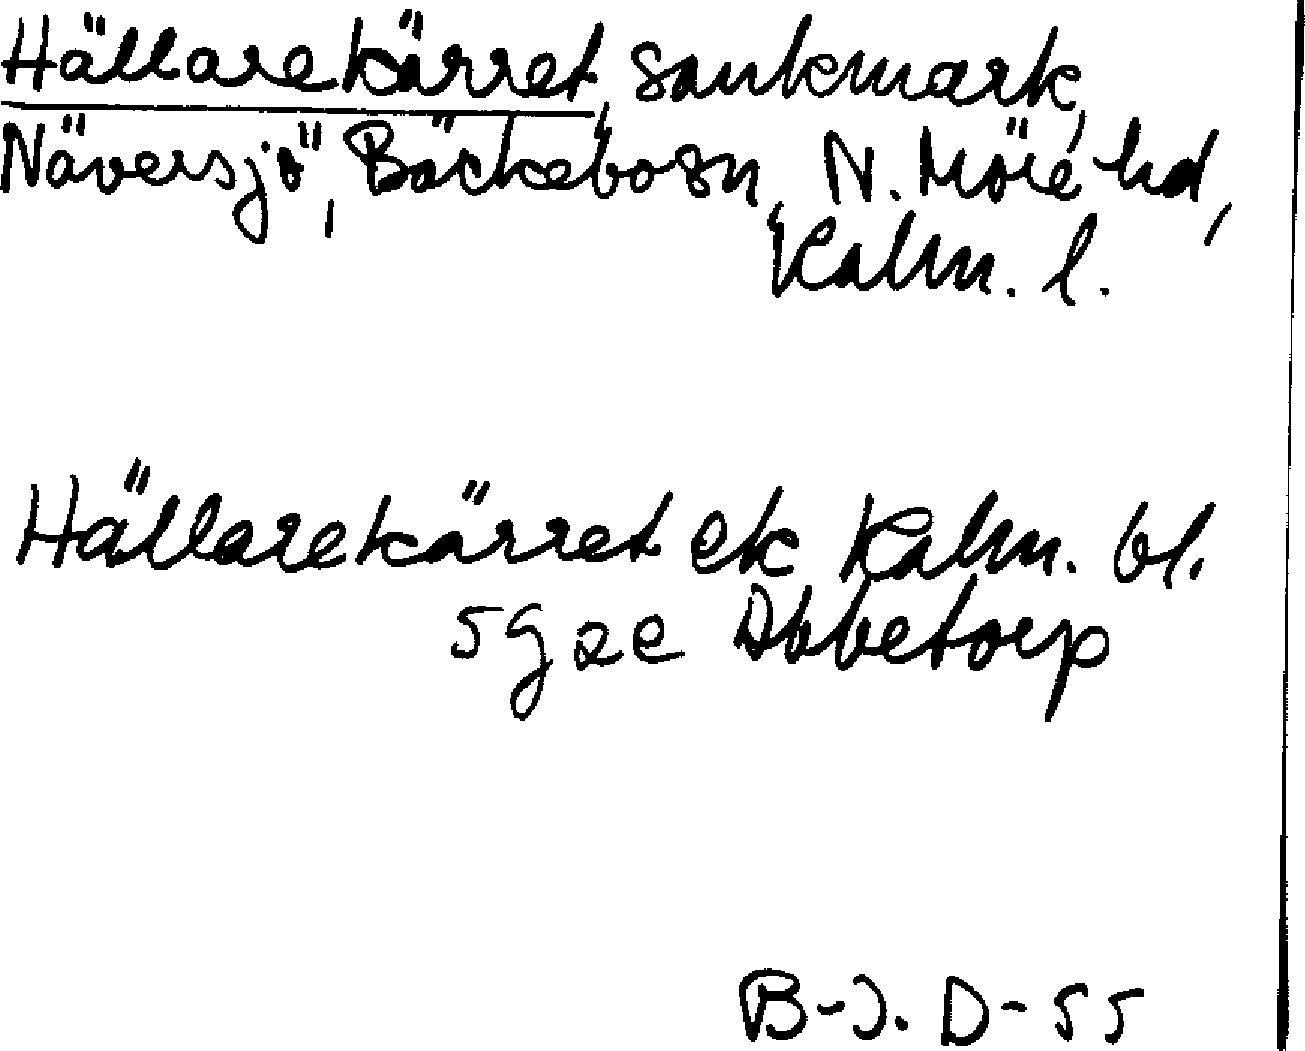 Hällarekärret, sankmark,
Näversjö, Bäckebo sn, N. Möre hd,
Kalm. l.
Hällarekärret ek Kalm. bl.
5g2e Abbetorp
B-J. D-55